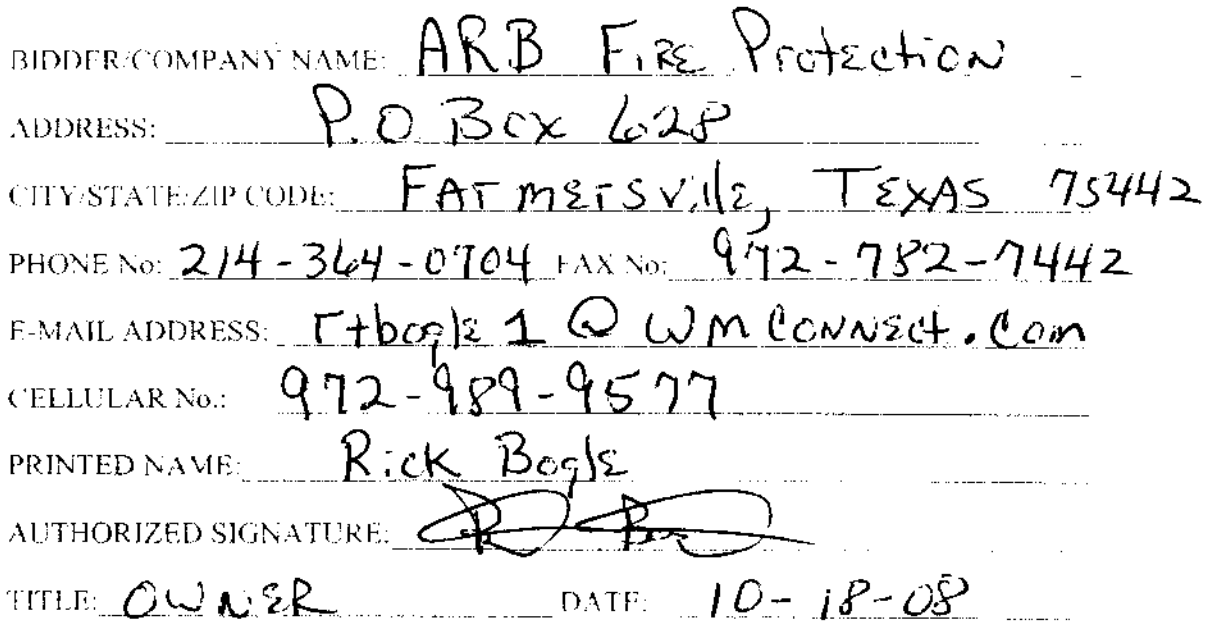 BIDDER/COMPANY NAME: ARB FIRE Protection
ADDRESS: P.O. Box 628
CITY/STATE/ZIP CODE: FArmersville, TEXAS 75442
PHONE No: 214-364-0704 FAX No: 972-782-7442
E-MAIL ADDRESS: rtbogle1@wmconnect.com
CELLULAR No.: 972-989-9577
PRINTED NAME: Rick Bogle
AUTHORIZED SIGNATURE:
TITLE: OWNER DATE: 10-18-08